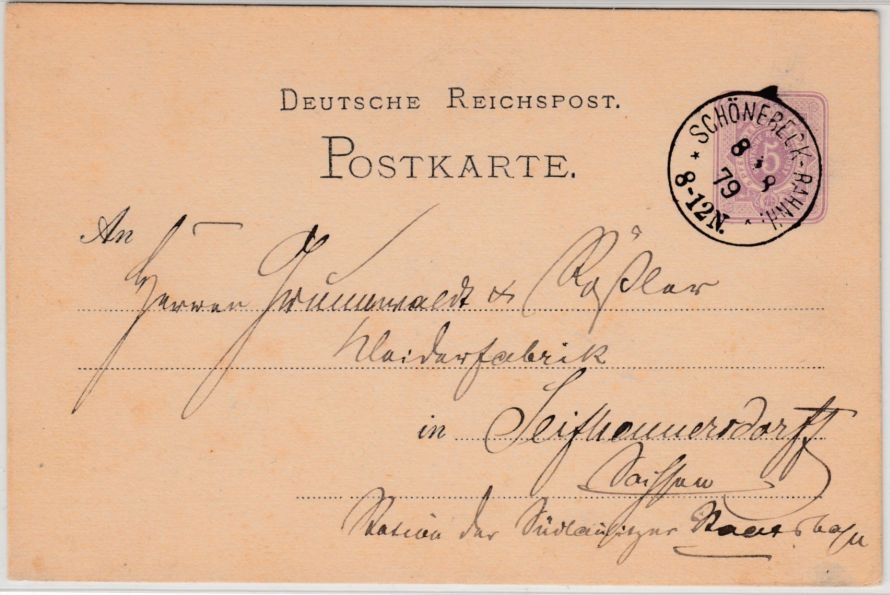 DEUTSCHE REICHSPOST.
POSTKARTE.
SCHÖNEBECK-BAHNH.
8 8
79
8-12N.
5
An
Herren Grunewaldt & Rößler
Kleiderfabrik
in Seifhennersdorff
Sachsen
Station der Südlausitzer Staatsbahn